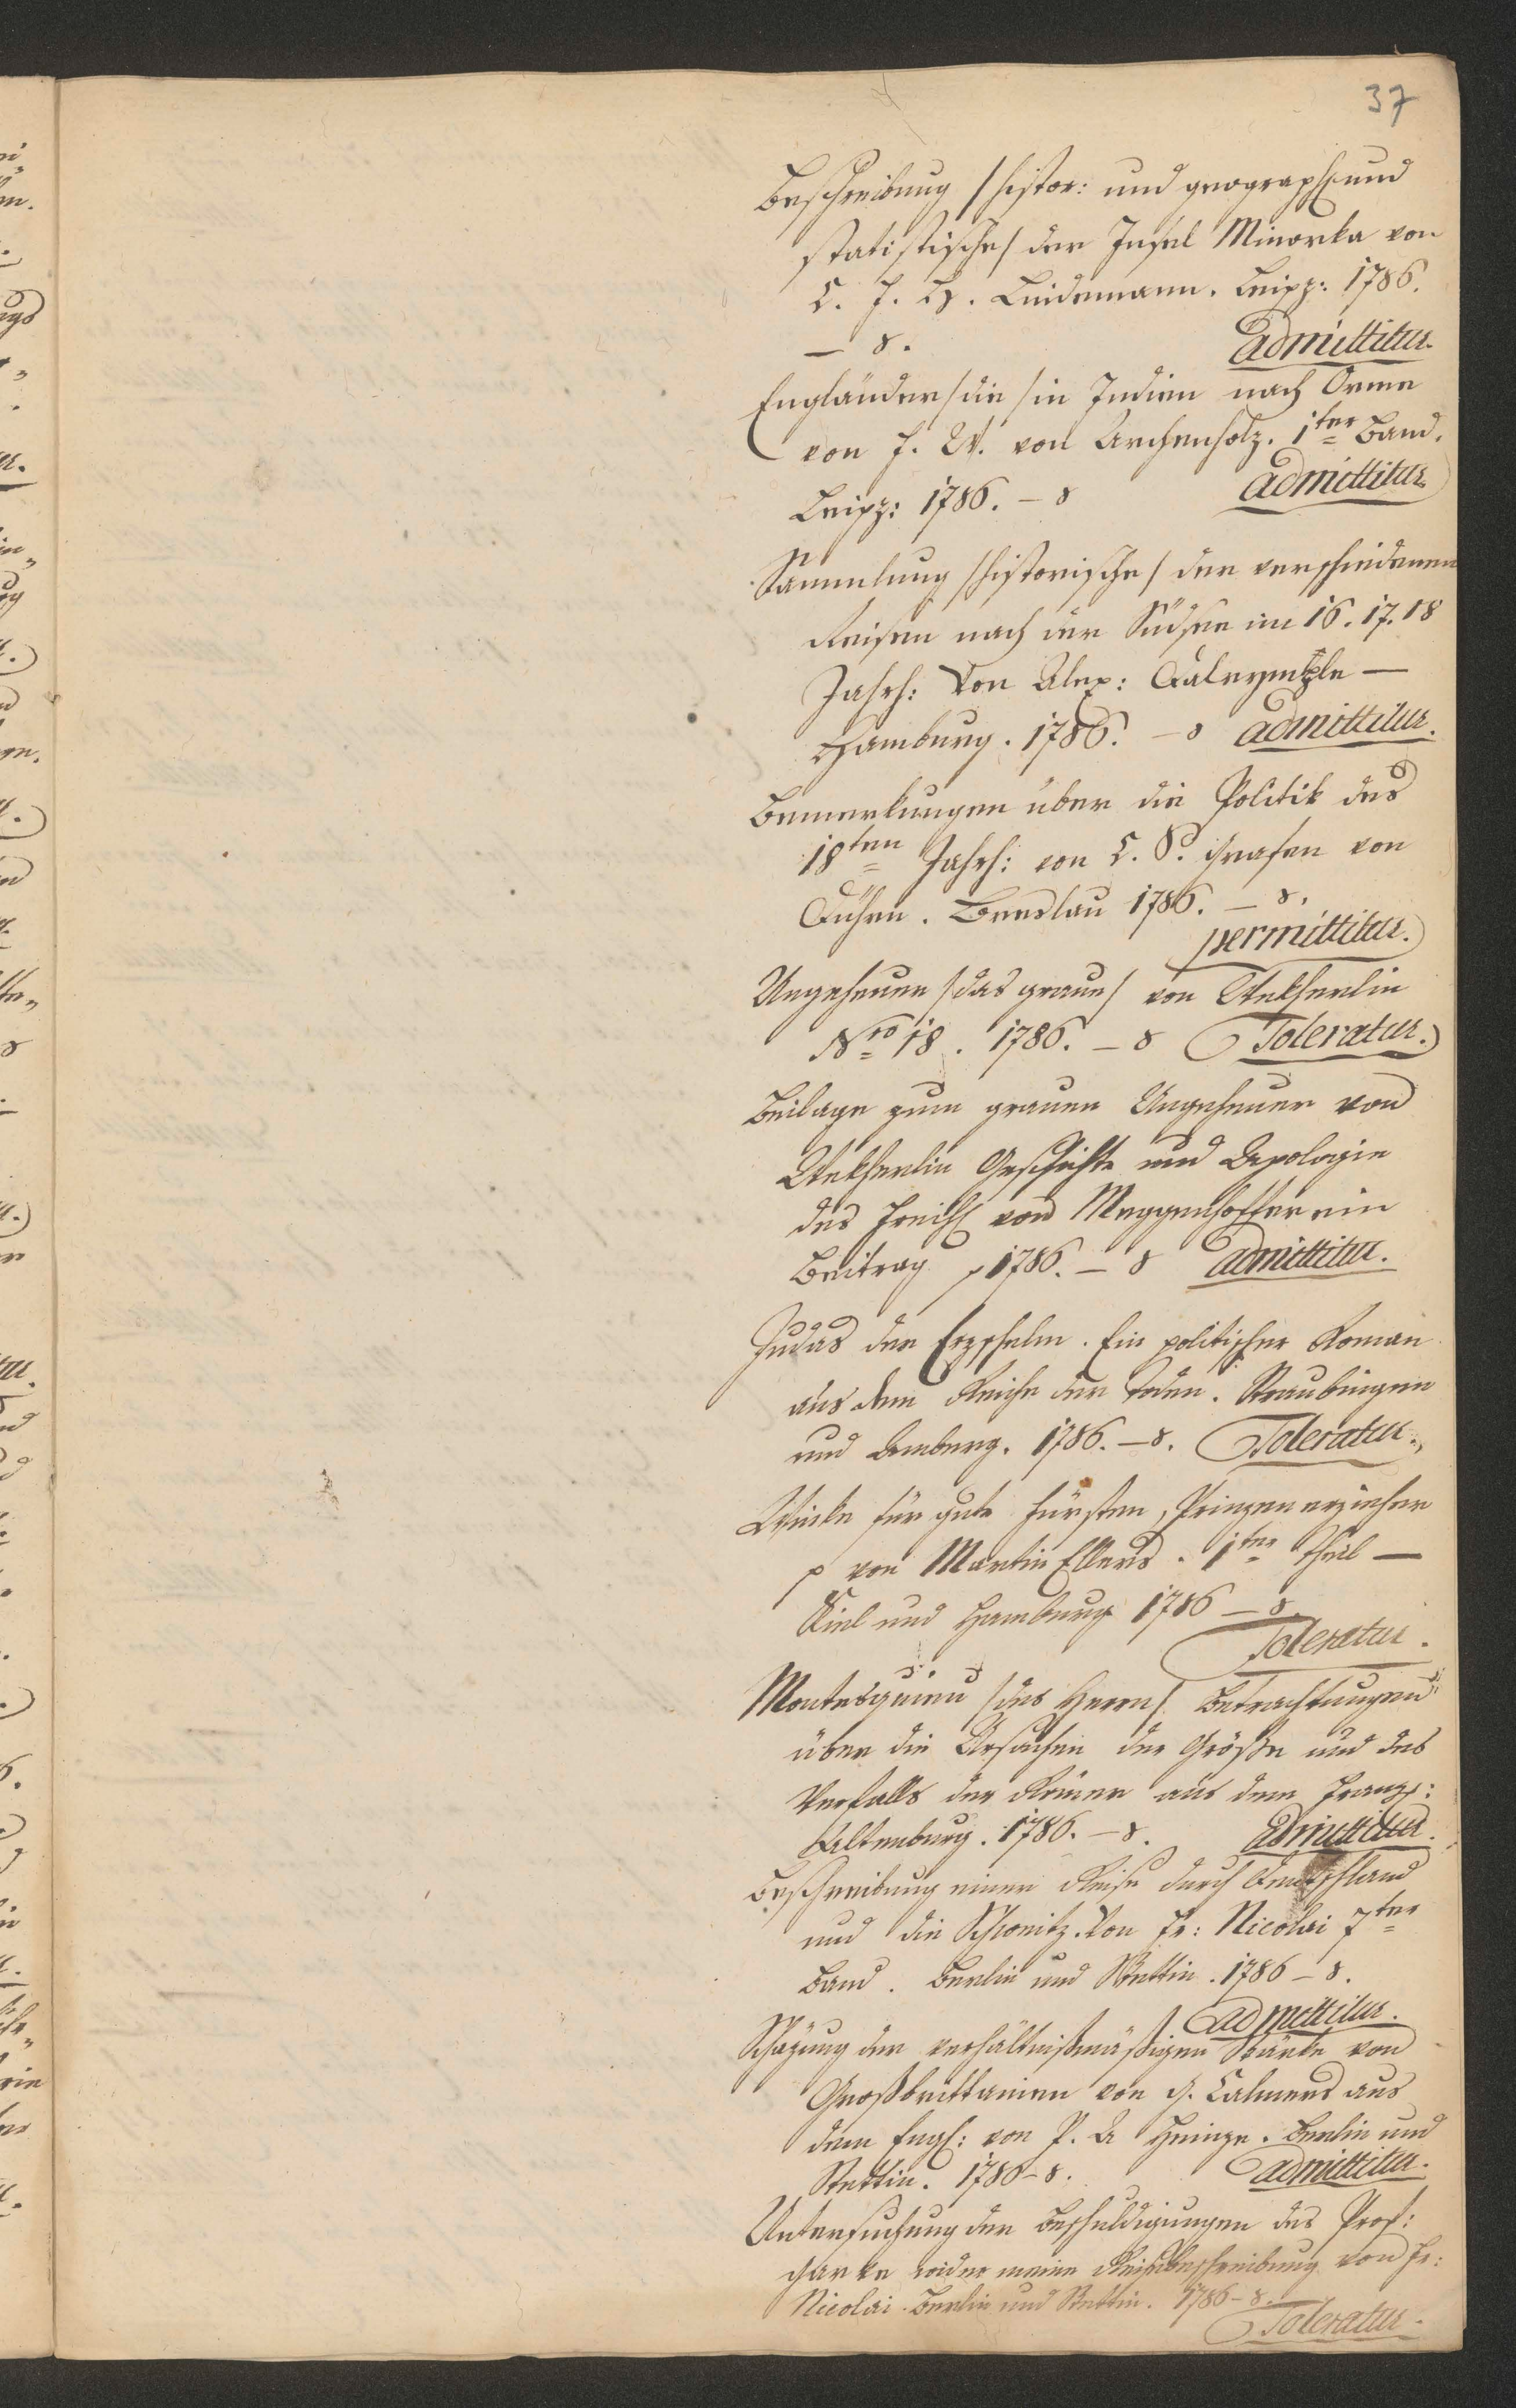 37
Beschreibung /histor: und geograph: und
statistische/ der Insel Minorka von
C. F. H. Lindemann. Leipz: 1786.
— 8. admittitur.
Engländer /die/ in Indien nach Orme
von J. W. von Archenholz. 1ter Band.
Leipz: 1786. – 8 admittitur.
Sammlung /historische/ der verschiedenen
Reisen nach der Südsee im 16. 17. 18
Jahrh: Von Alex: Dalrymple —
Hamburg. 1786. – 8 admittitur.
Bemerkungen über die Politik des
18ten Jahrh: von C. S. Grafen von
Dühen. Breslau 1786. – 8.
permittitur.
Ungeheuer /das graue/ von Wekherlin
Nro 18. 1786. – 8 Toleratur.
Beilage zum grauen Ungeheuer von
Wekherlin Geschichte und Apologie
des Freih: von Meggenhoffer ein
Beitrag p 1786. – 8 admittitur.
Judas der Erzschelm. Ein politischer Roman
aus dem Reiche der Toden. Straubingen
und Amberg. 1786. – 8. Toleratur.
Winke für gute Fürsten, Prinzenerzieher
p von Martin Ellers. 1ter Theil —
Kiel und Hamburg 1786 – 8.
Toleratur.
Montesquieu /des Herrn/ Betrachtungen
über die Ursachen der Größe und des
Verfalls der Römer aus dem Franz:
Altenburg. 1786. – 8. admittitur.
Beschreibung einer Reise durch Deutschland
und die Schweitz. Von Fr: Nicolai 7ter
Band. Berlin und Stettin. 1786 – 8.
admittitur.
Schäzung der verhältnißmäßigen Stärke von
Großbrittanien von G. Calmers aus
dem Engl: von P. A Heinze. Berlin und
Stettin. 1786 – 8. admittitur.
Untersuchung der Beschuldigungen des Prof:
Garve wider meine Reisebeschreibung von Fr:
Nicolai. Berlin und Stettin. 1786 – 8.
Toleratur.